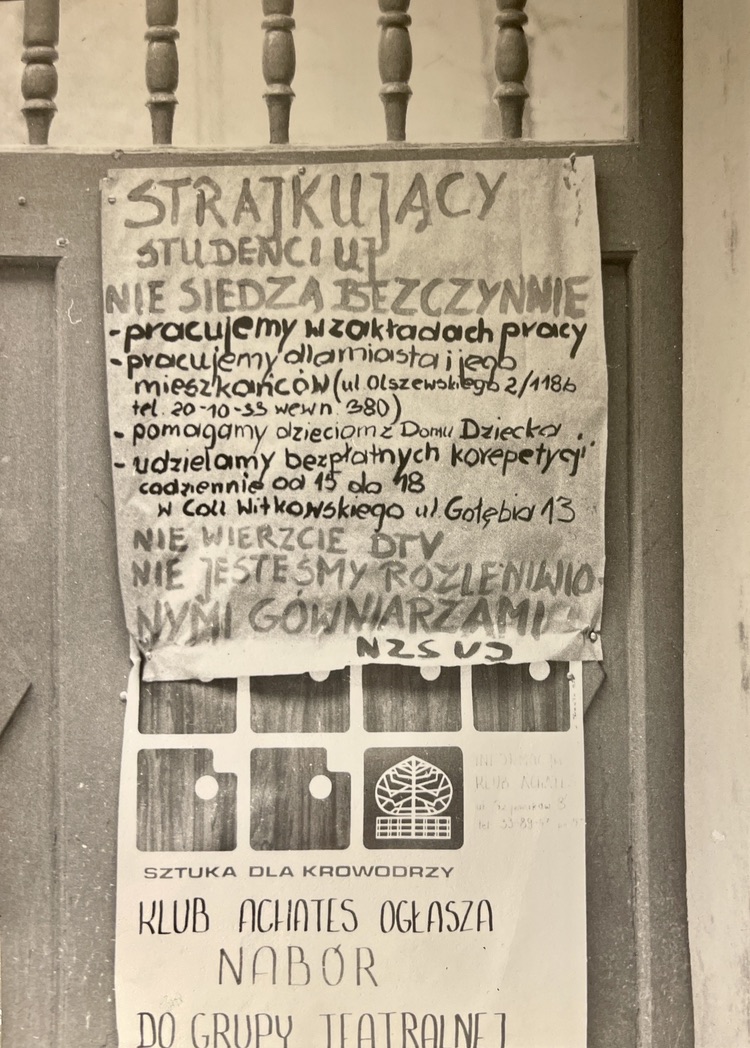 STRAJKUJĄCY
STUDEŃCI UJ
NIE SIEDZĄ BEZCZYNNIE
- pracujemy w zakładach pracy
- pracujemy dla miasta i jego
mieszkańców (ul. Olszewskiego 2/118b
tel. 20-10-33 wewn. 380)
- pomagamy dzieciom z Domu Dziecka
- udzielamy bezpłatnych korepetycji
codziennie od 15 do 18
w Coll Witkowskiego ul. Gołębia 13
NIE WIERZCIE DTV
NIE JESTEŚMY ROZLENIWIO-
NYMI GÓWNIARZAMI
NZS UJ
KLUB
SZTUKA DLA KROWODRZY
KLUB ACHATES OGŁASZA
NABÓR
DO GRUPY TEATRALNEJ